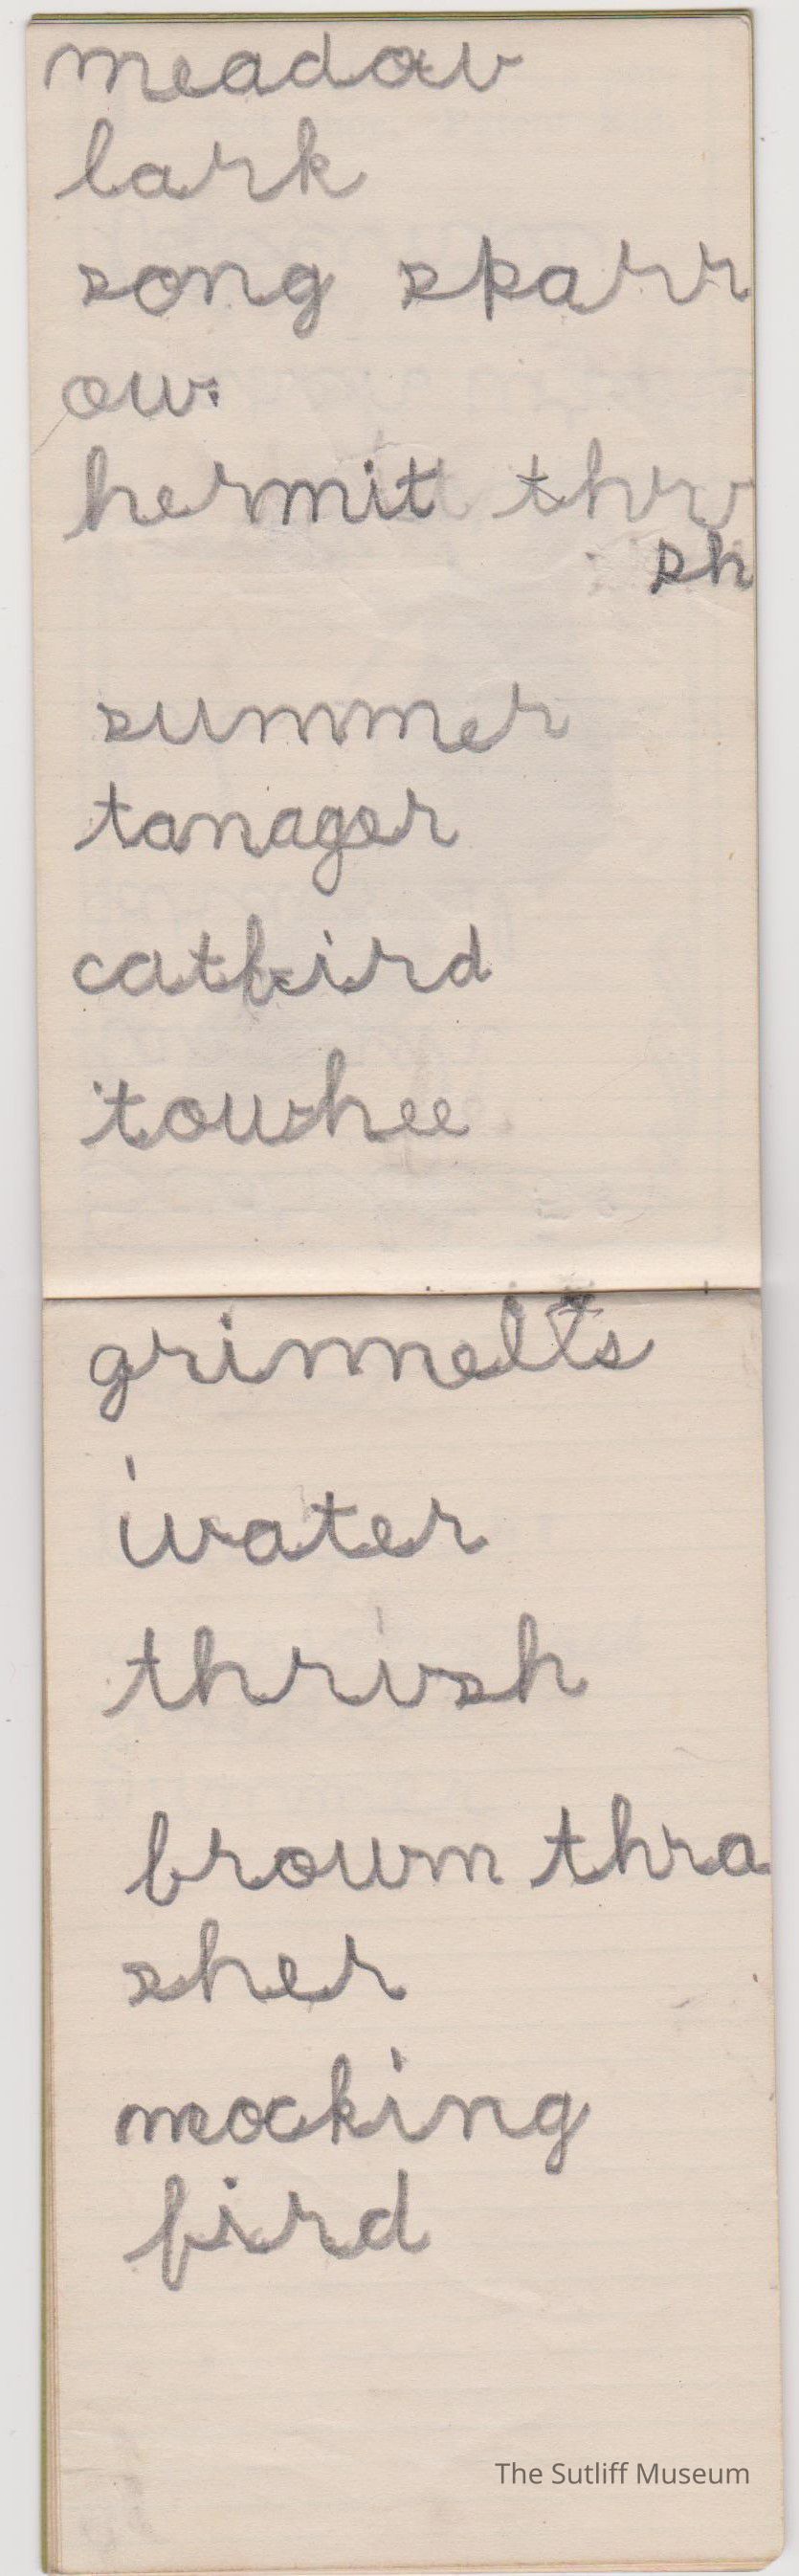 meadow
lark
song sparr
ow.
hermit thru
sh
summer
tanager
catbird
towhee
grinnells
water
thrush
brown thra
sher
mocking
bird
The Sutliff Museum